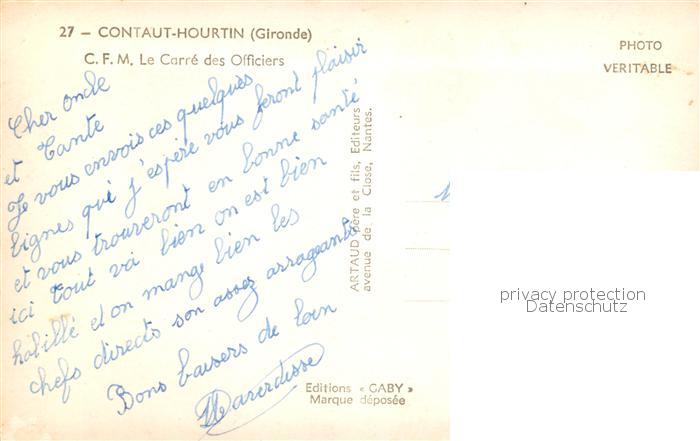 27 — CONTAUT-HOURTIN (Gironde)
C. F. M. Le Carré des Officiers
PHOTO
VERITABLE
Cher oncle
et Tante
Je vous envois ces quelques
lignes qui j'espère vous feront plaisir
et vous trouveront en bonne santé
ici tout va bien on est bien
habillé et on mange bien les
chefs directs son assez arrageants
Bons baisers de loin
ARTAUD père et fils, Editeurs
avenue de la Close, Nantes.
privacy protection
Datenschutz
Editions « GABY »
Marque déposée